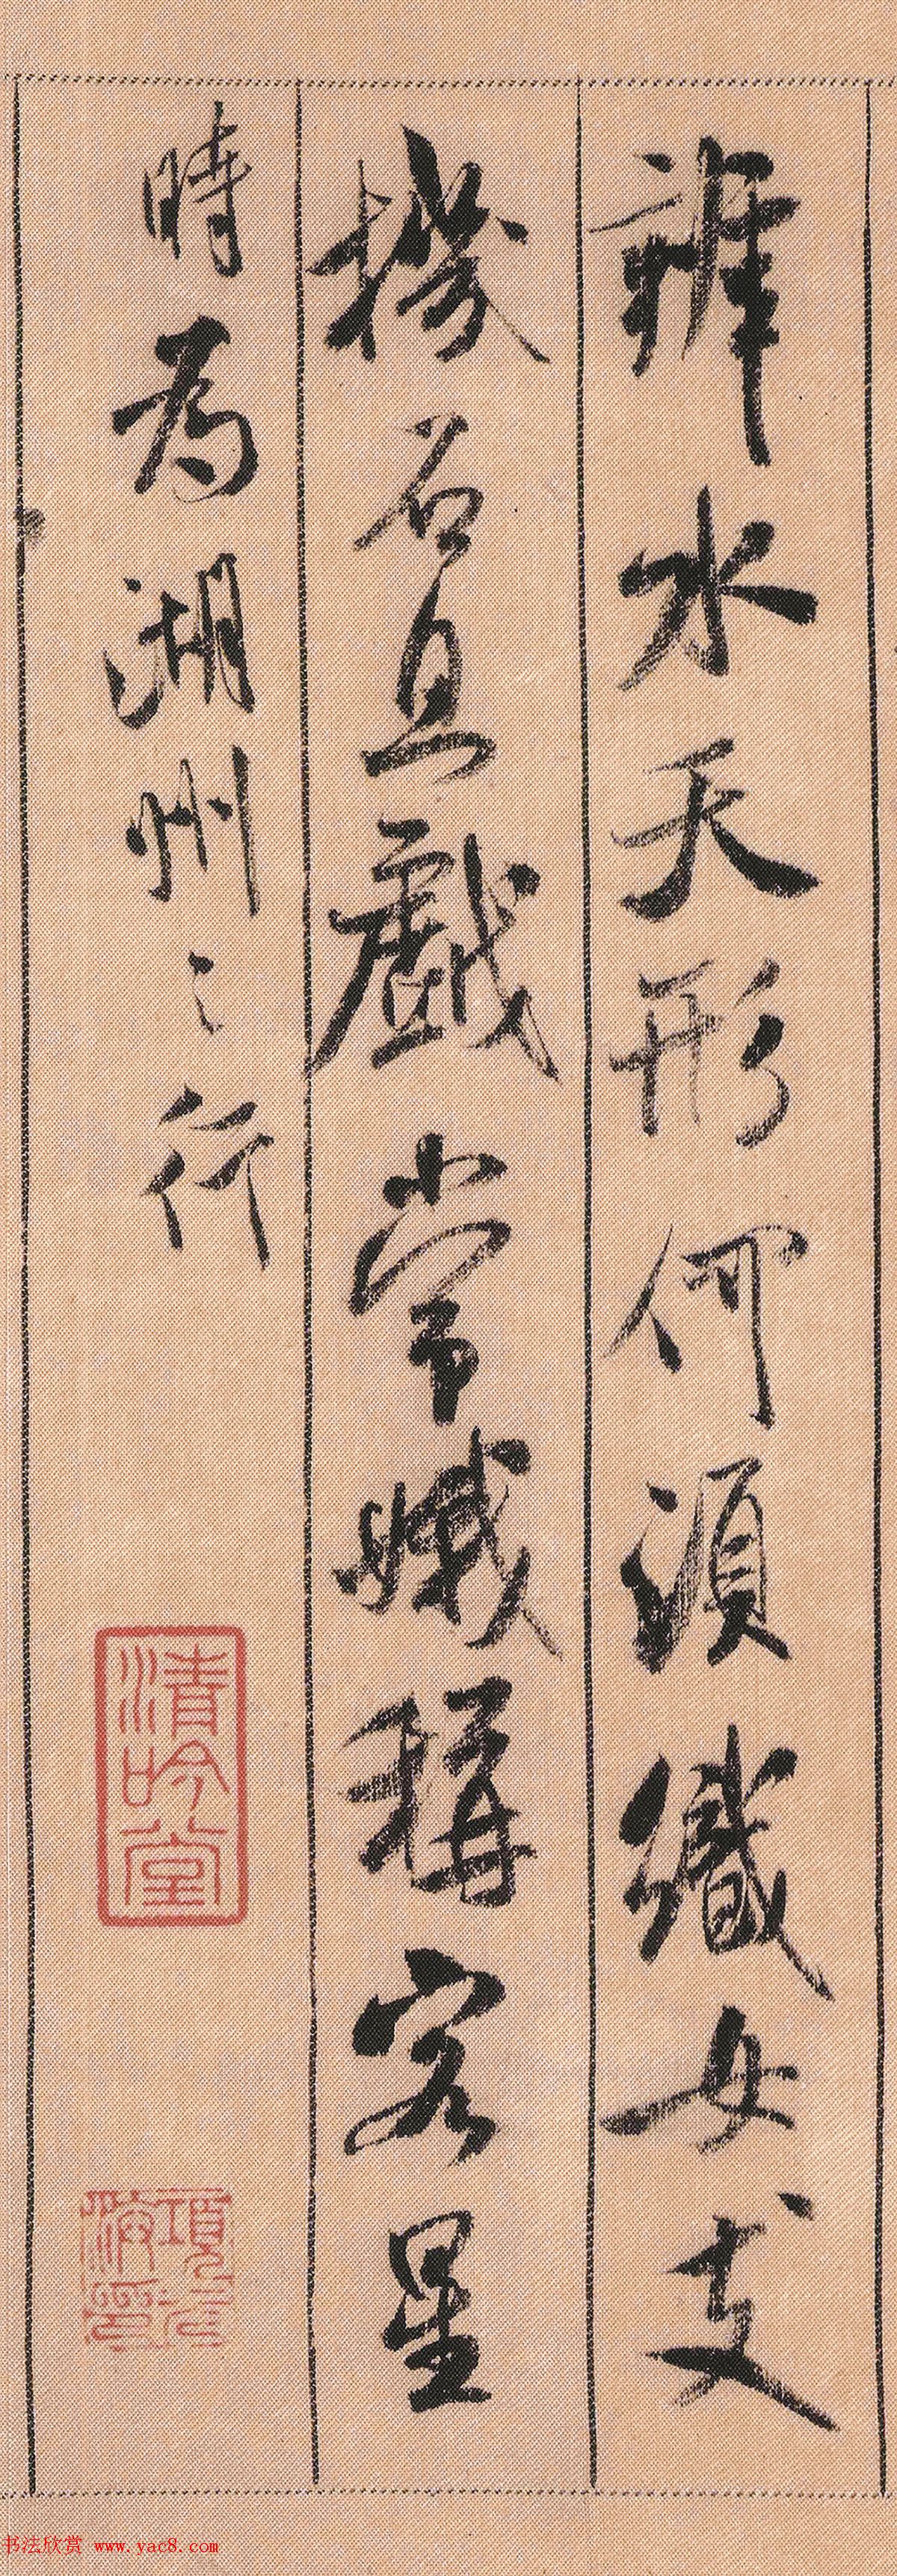 辨水天形何須織女支
機石且戲常娥稱客星
時爲湖州之行
清吟堂
項元
汴印
书法欣赏 www.yac8.com